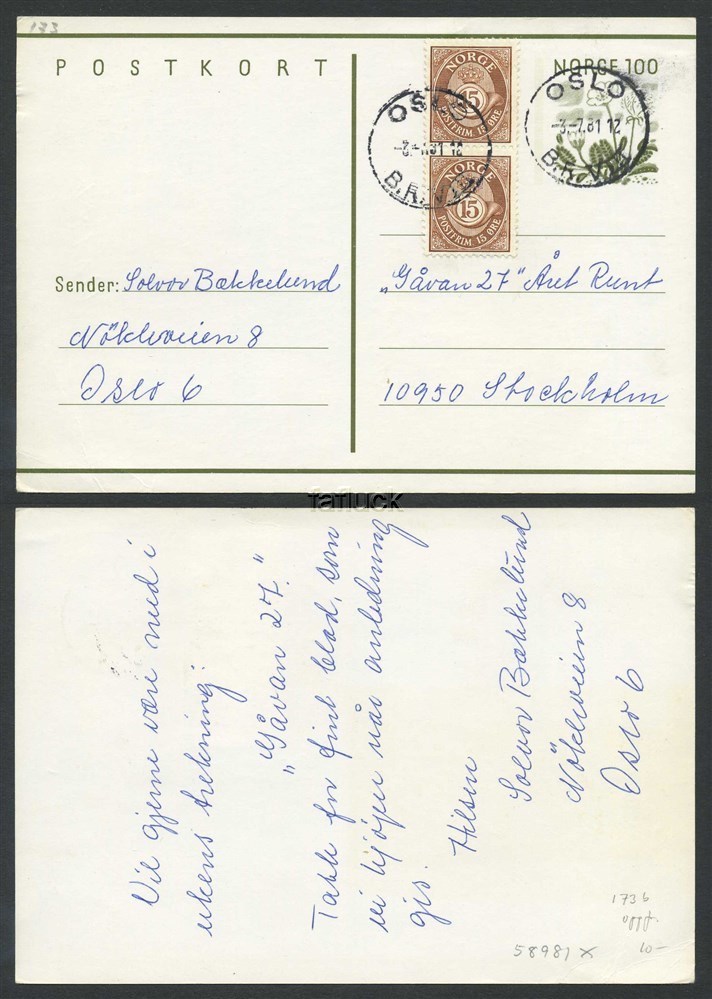 173
POSTKORT
NORGE
15
POSTFRIM. 15 ØRE
NORGE
15
POSTFRIM. 15 ØRE
NORGE 100
OSLO
-3.-7.81 12
B.R.V.
OSLO
-3.-7.81 12
B.R.V.
Sender: Solvor Bækkelund
Nökleveien 8
Oslo 6
„Gåvan 27" Året Runt
10950 Stockholm
fafluck
Vil gjerne være med i
ukens trekning:
„Gåvan 27."
Takk for fint blad, som
vi kjöper når anledning
gis.
Hilsen
Solvor Bækkelund
Nökleveien 8
Oslo 6
173 b
10-
58981 x